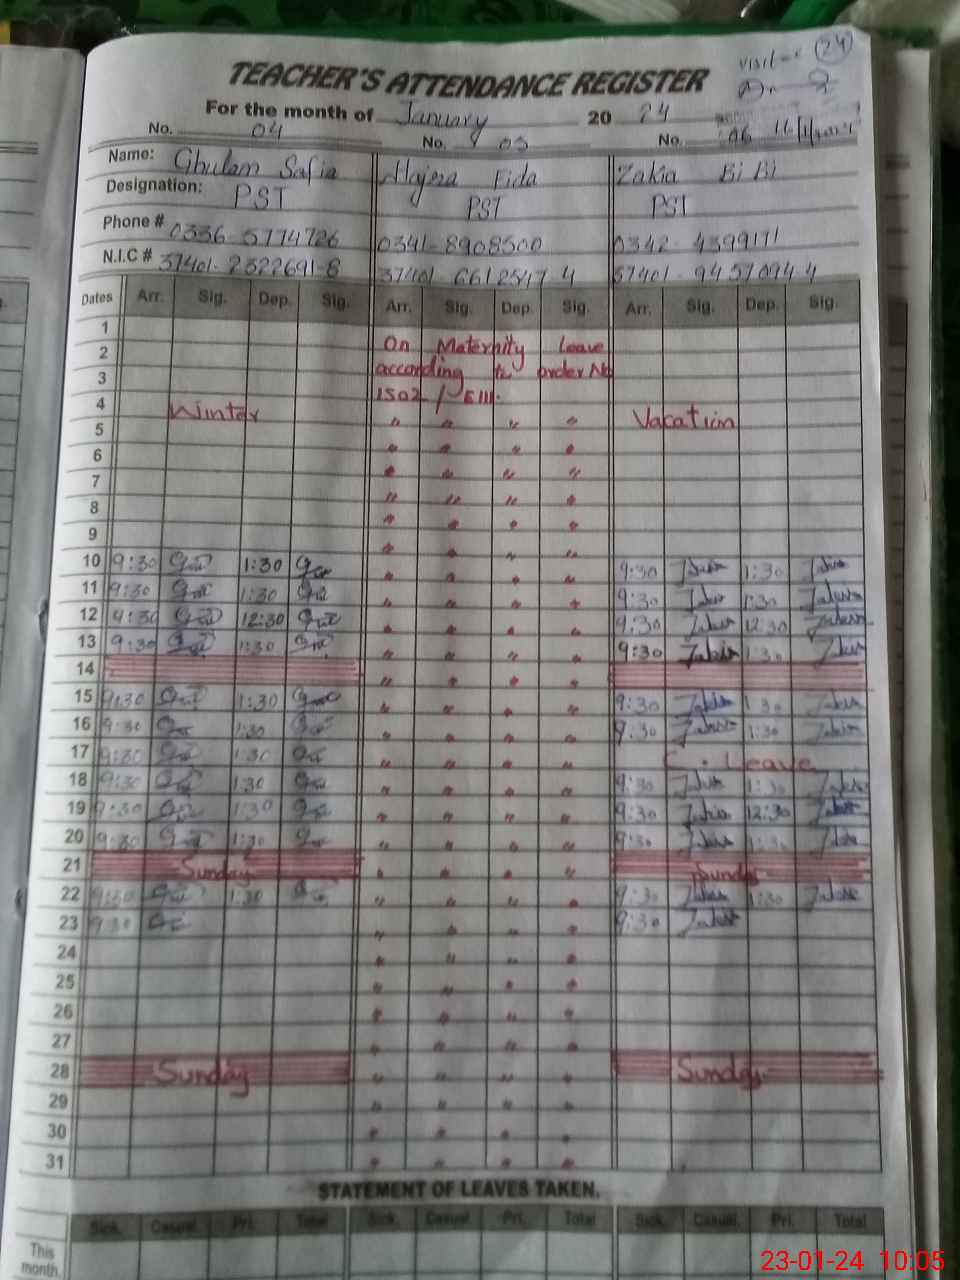 visit-
24
TEACHER'S ATTENDANCE REGISTER
For the month of January 2024
No. 04 No. 05 No. 06
Name: Ghulam Safia Hajera Fida Zakia Bi Bi
Designation: PST PST PST
Phone # 0336-5774726 0341-8908500 0342-4399171
N.I.C # 37401-2322691-8 37401-6612547-4 37401-9457094-4
Dates Arr. Sig. Dep. Sig. Arr. Sig. Dep. Sig. Arr. Sig. Dep. Sig.
1
2 On Maternity Leave
3 according to order No
4 1502/ EIII.
Winter Vacation
5 " " " "
6 " " " "
7 " " " "
8 " " " "
9 " " " "
10 9:30 1:30 " " " " 9:30 Zakia 1:30 Zakia
11 9:30 1:30 " " " " 9:30 Zakia 1:30 Zakia
12 9:30 12:30 " " " " 9:30 Zakia 12:30 Zakia
13 9:30 1:30 " " " " 9:30 Zakia 1:30 Zakia
14 " " " "
15 9:30 1:30 " " " " 9:30 Zakia 1:30 Zakia
16 9:30 1:30 " " " " 9:30 Zakia 1:30 Zakia
17 9:30 1:30 " " " " C. Leave
18 9:30 1:30 " " " " 9:30 Zakia 1:30 Zakia
19 9:30 1:30 " " " " 9:30 Zakia 12:30 Zakia
20 9:30 1:30 " " " " 9:30 Zakia 1:30 Zakia
21 Sunday " " " " Sunday
22 9:30 1:30 " " " " 9:30 Zakia 1:30 Zakia
23 9:30 " " " " 9:30 Zakia
24 " " " "
25 " " " "
26 " " " "
27 " " " "
28 Sunday " " " " Sunday
29 " " " "
30 " " " "
31 " " " "
STATEMENT OF LEAVES TAKEN.
Sick. Casual. Pri. Total Sick. Casual. Pri. Total Sick. Casual. Pri. Total
This
month.
23-01-24 10:05